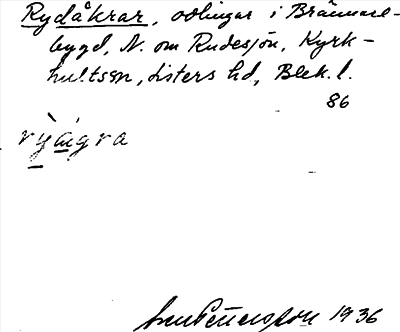 Rydåkrar, odlingar i Brännare-
bygd, N. om Rudesjön, Kyrk-
hultssn, Listers hd, Blek. l.
86
rỳågra
1936